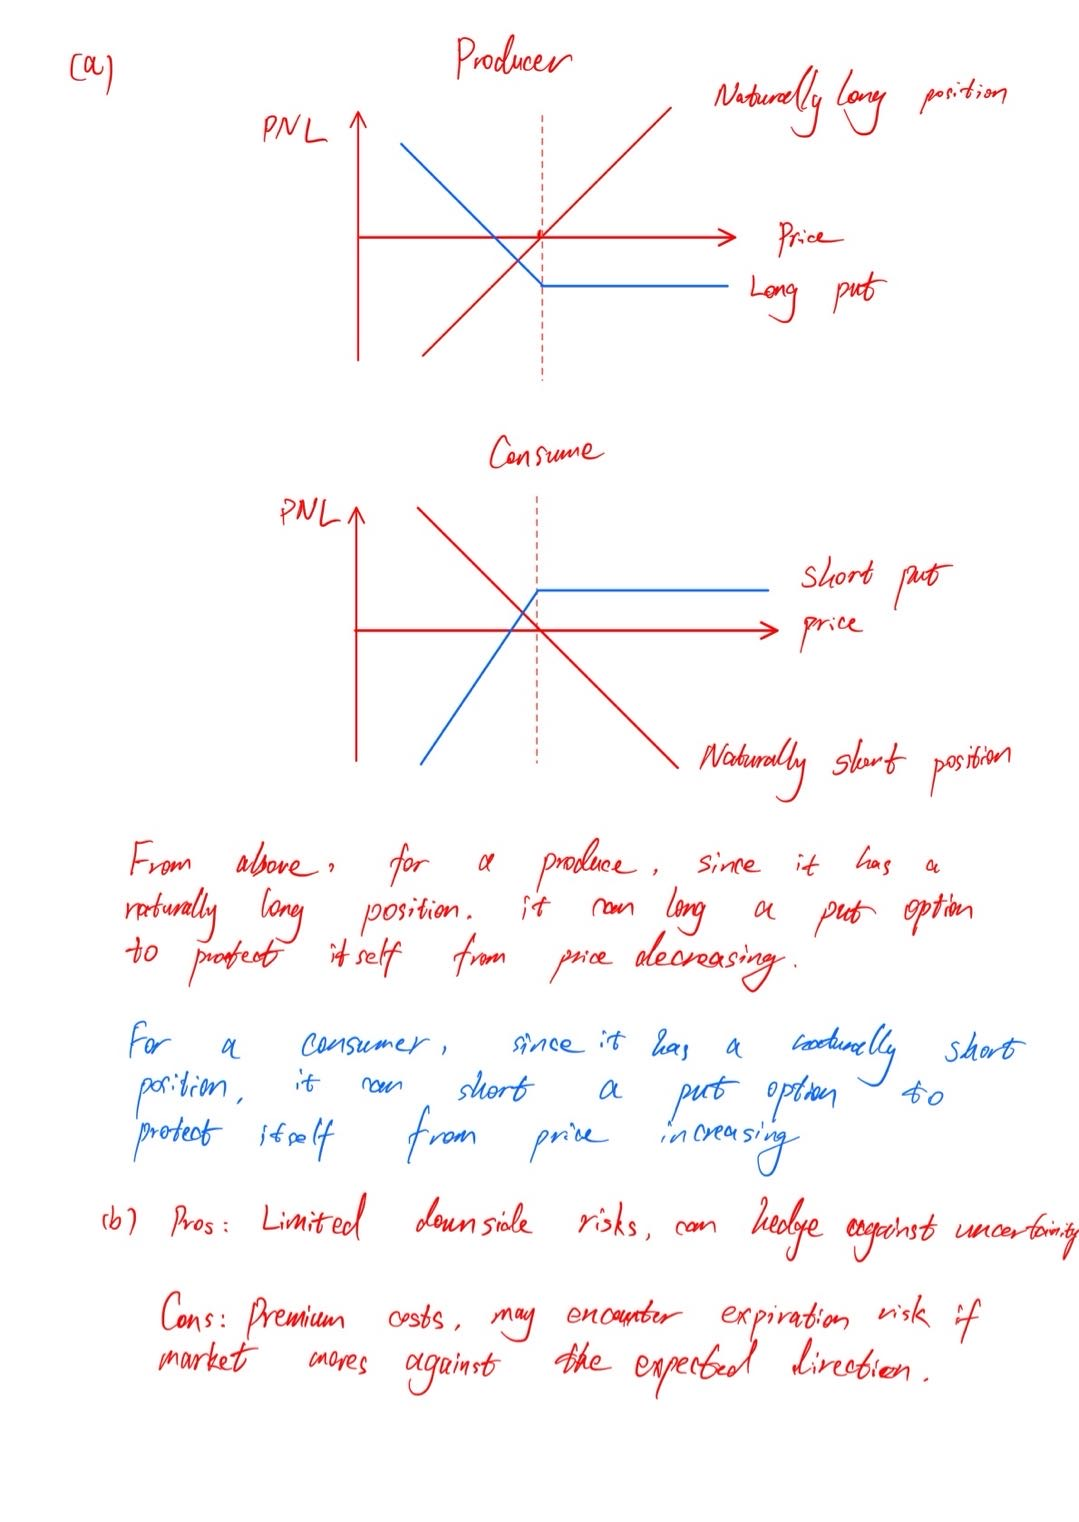 (a)
Producer
Naturally long position
PNL
Price
Long put
Consume
PNL
short put
price
Naturally short position
From above, for a produce, since it has a
naturally long position. it can long a put option
to protect itself from price decreasing.
For a consumer, since it has a naturally short
position, it can short a put option to
protect itself from price increasing
(b) Pros: Limited downside risks, can hedge against uncertainity
Cons: Premium costs, may encounter expiration risk if
market moves against the expected direction.